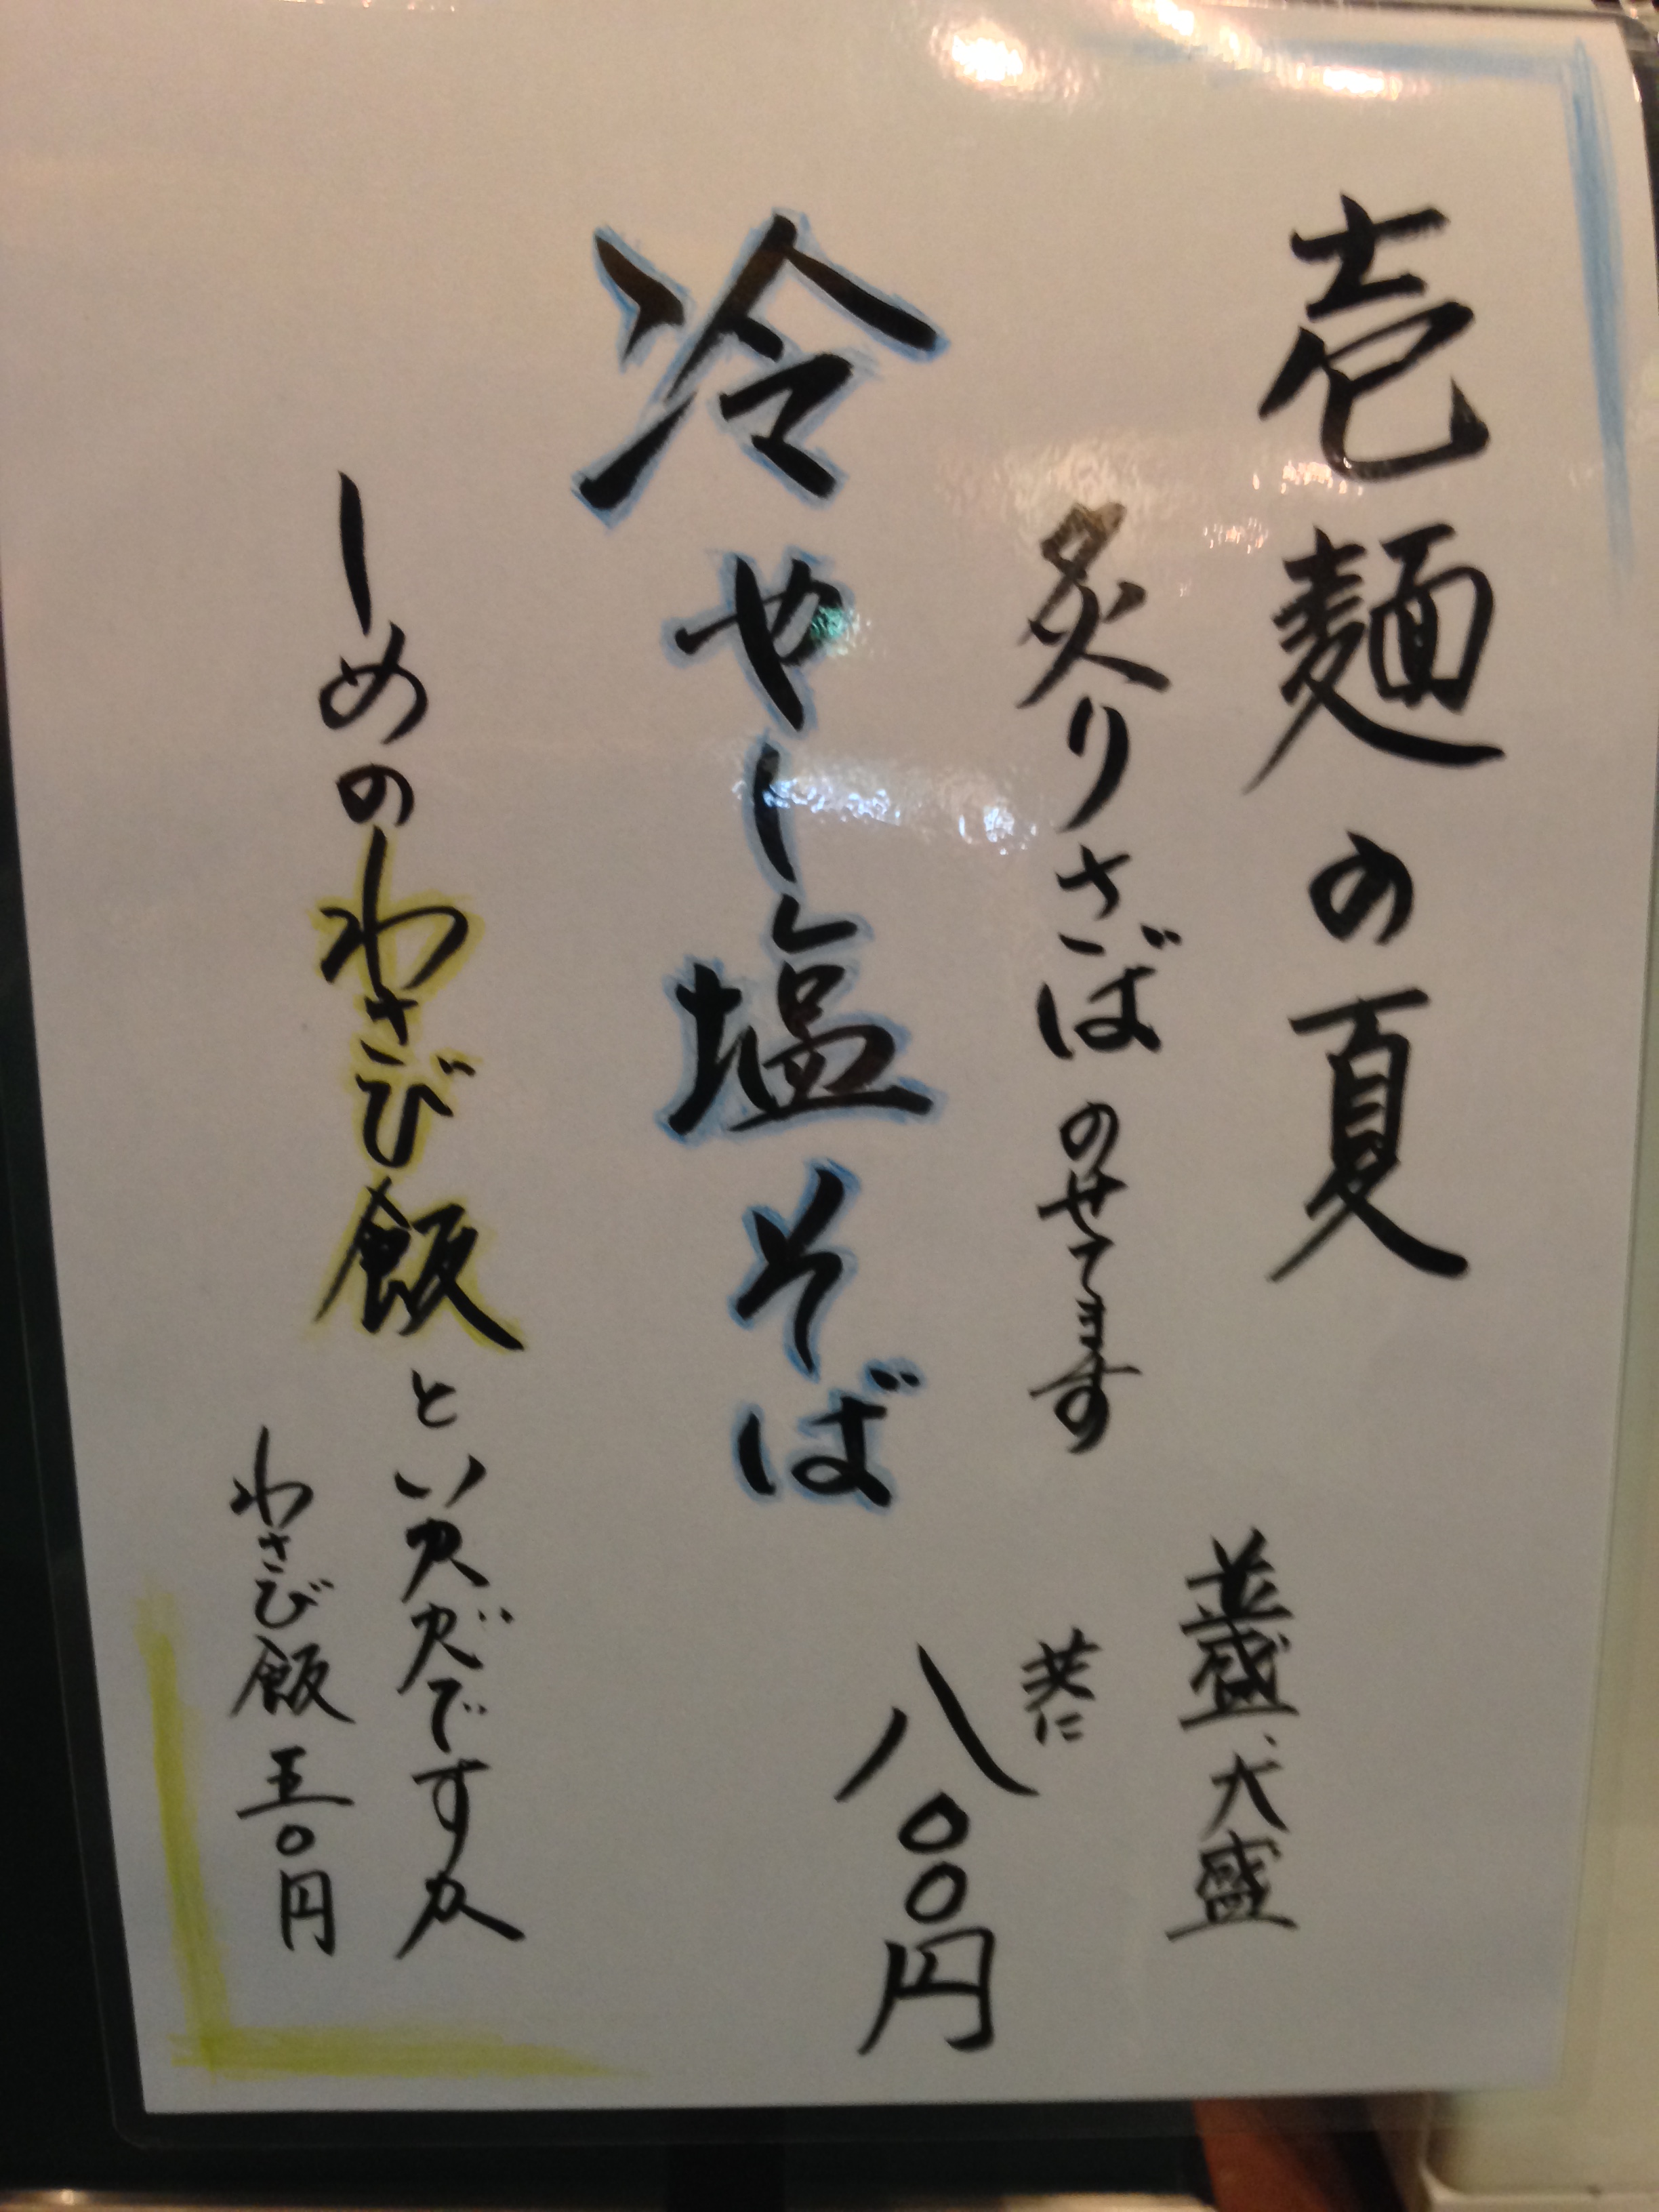 壱麺の夏
炙りさばのせてます
並盛、大盛
共に
冷やし塩そば
八〇〇円
しめのわさび飯といかがですか
わさび飯 五〇円